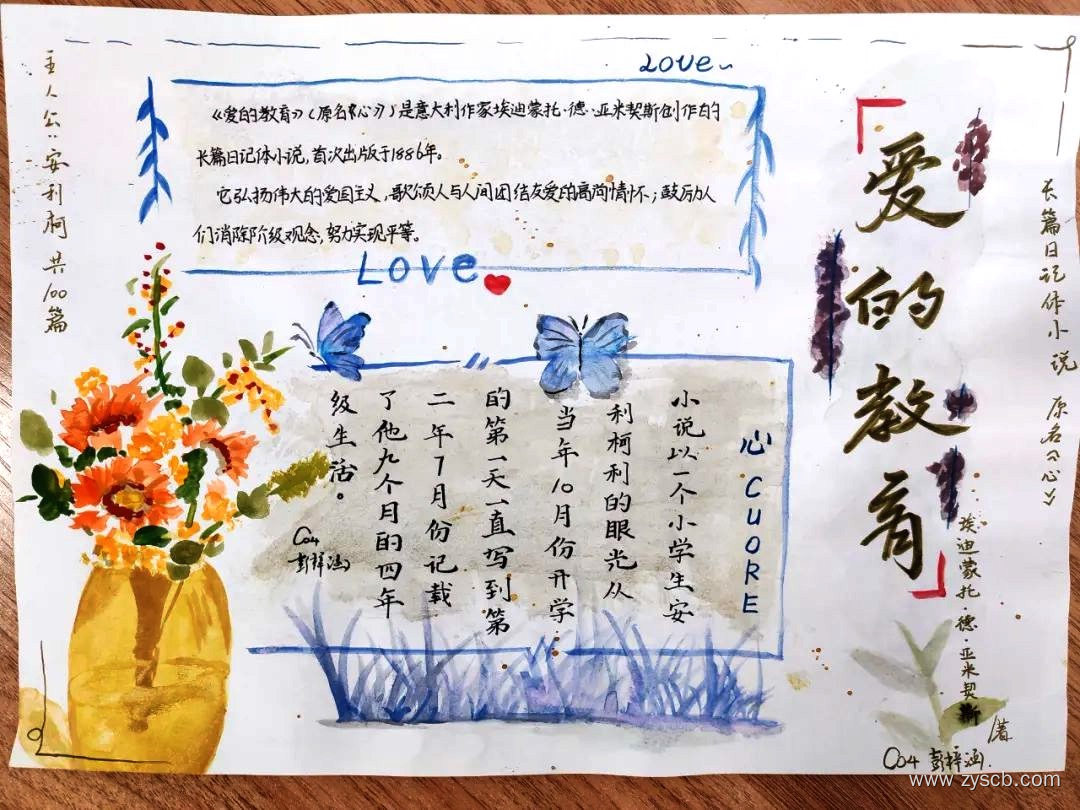 Love~
《爱的教育》(原名《心》)是意大利作家埃迪蒙托·德·亚米契斯创作的
长篇日记体小说，首次出版于1886年。
它弘扬伟大的爱国主义，歌颂人与人间团结友爱的高尚情怀；鼓励人
们消除阶级观念，努力实现平等。
Love
主人公：安利柯 共100篇
爱的教育
长篇日记体小说 原名《心》
埃迪蒙托·德·亚米契斯 著
心 CUORE
小说以一个小学生安
利柯利的眼光从
当年10月份开学
的第一天一直写到第
二年7月份记载
了他九个月的四年
级生活。
C04
彭梓涵
C04 彭梓涵.
www.zyscb.com